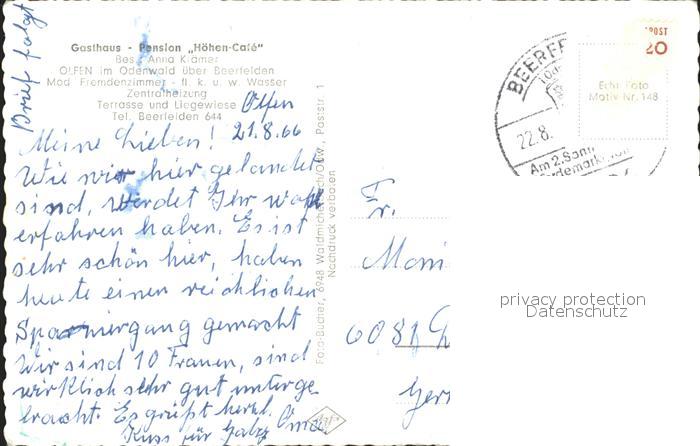 Brief folgt
Gasthaus - Pension „Höhen-Café"
Bes. Anna Krämer
OLFEN im Odenwald über Beerfelden
Mod. Fremdenzimmer - fl. k. u. w. Wasser
Zentralheizung
Terrasse und Liegewiese
Tel. Beerfelden 644
Olfen
21.8.66
Meine Lieben!
Wie wir hier gelandet
sind, werdet Ihr wohl
erfahren haben. Es ist
sehr schön hier, haben
heute einen reichlichen
Spaziergang gemacht
Wir sind 10 Frauen, sind
wirklich sehr gut unterge
bracht. Es grüßt herzl.
Kuss für Gaby Oma
Foto-Bücher, 6948 Waldmichelbach/Odw., Poststr. 1
Nachdruck verboten
POST
20
BEERFE
22.8.
Am 2. Sonn
Echt Foto
Motiv Nr. 148
Fr.
Moni
6081
privacy protection
Datenschutz